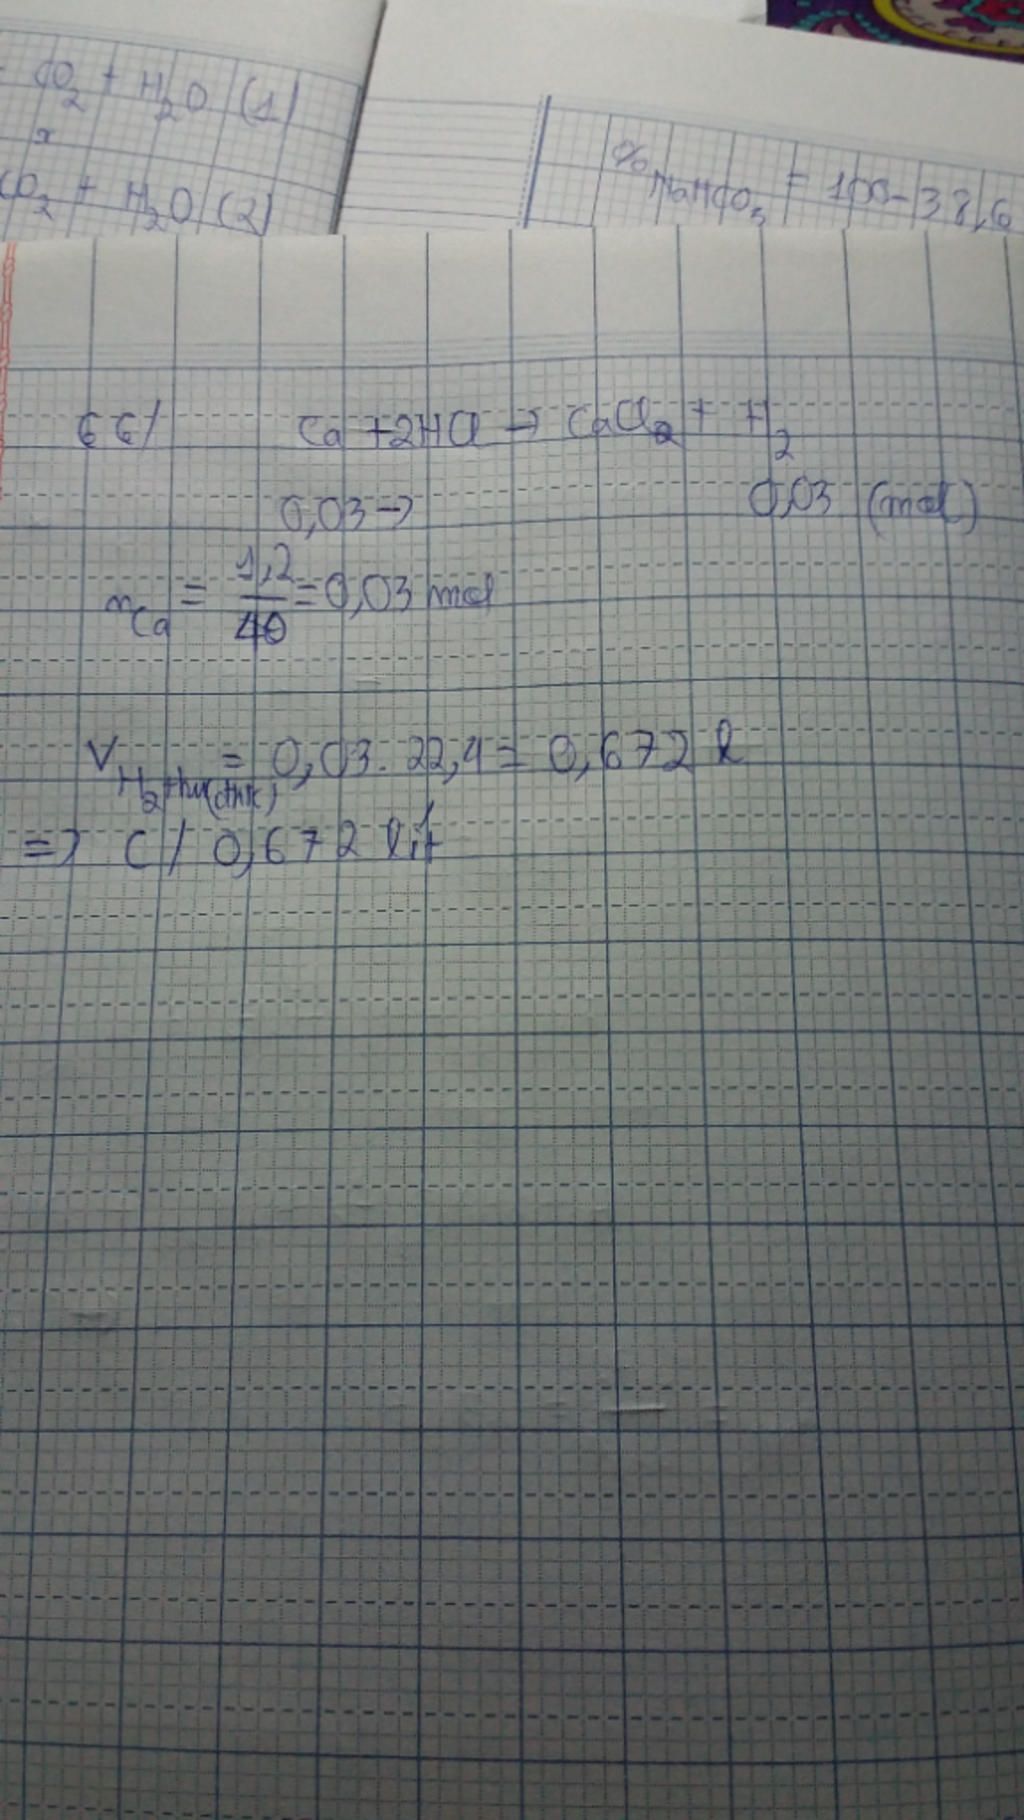 CO2 + H2O (1)
x
CO2 + H2O (2)
% NaHCO3 = 100 - 38,6
66/ Ca + 2HCl → CaCl2 + H2
0,03 → 0,03 (mol)
nCa = 1,2/40 = 0,03 mol
VH2 thu(đktc) = 0,03 . 22,4 = 0,672 l
=> C / 0,672 lít